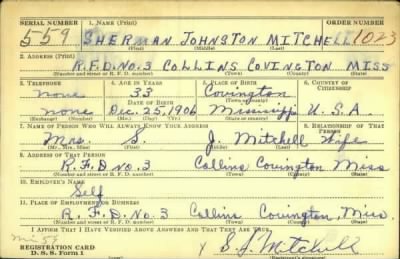 SERIAL NUMBER 1. NAME (Print) ORDER NUMBER
559 SHERMAN JOHNSTON MITCHELL 1023
(First) (Middle) (Last)
2. ADDRESS (Print)
R.F.D. No. 3 COLLINS COVINGTON MISS
(Number and street or R. F. D. number) (Town) (County) (State)
3. TELEPHONE 4. AGE IN YEARS 5. PLACE OF BIRTH 6. COUNTRY OF CITIZENSHIP
none 33 Covington
DATE OF BIRTH (Town or county)
none Dec. 25, 1906 Mississippi U.S.A.
(Exchange) (Number) (Mo.) (Day) (Yr.) (State or country)
7. NAME OF PERSON WHO WILL ALWAYS KNOW YOUR ADDRESS 8. RELATIONSHIP OF THAT PERSON
Mrs. S. J. Mitchell Wife
(Mr., Mrs., Miss) (First) (Middle) (Last)
9. ADDRESS OF THAT PERSON
R.F.D No 3 Collins Covington Miss
(Number and street or R. F. D. number) (Town) (County) (State)
10. EMPLOYER'S NAME
Self
11. PLACE OF EMPLOYMENT OR BUSINESS
R.F.D. No. 3 Collins Covington, Miss.
(Number and street or R. F. D. number) (Town) (County) (State)
I AFFIRM THAT I HAVE VERIFIED ABOVE ANSWERS AND THAT THEY ARE TRUE.
REGISTRATION CARD
D. S. S. Form 1 X S J Mitchell
(Registrant's signature)